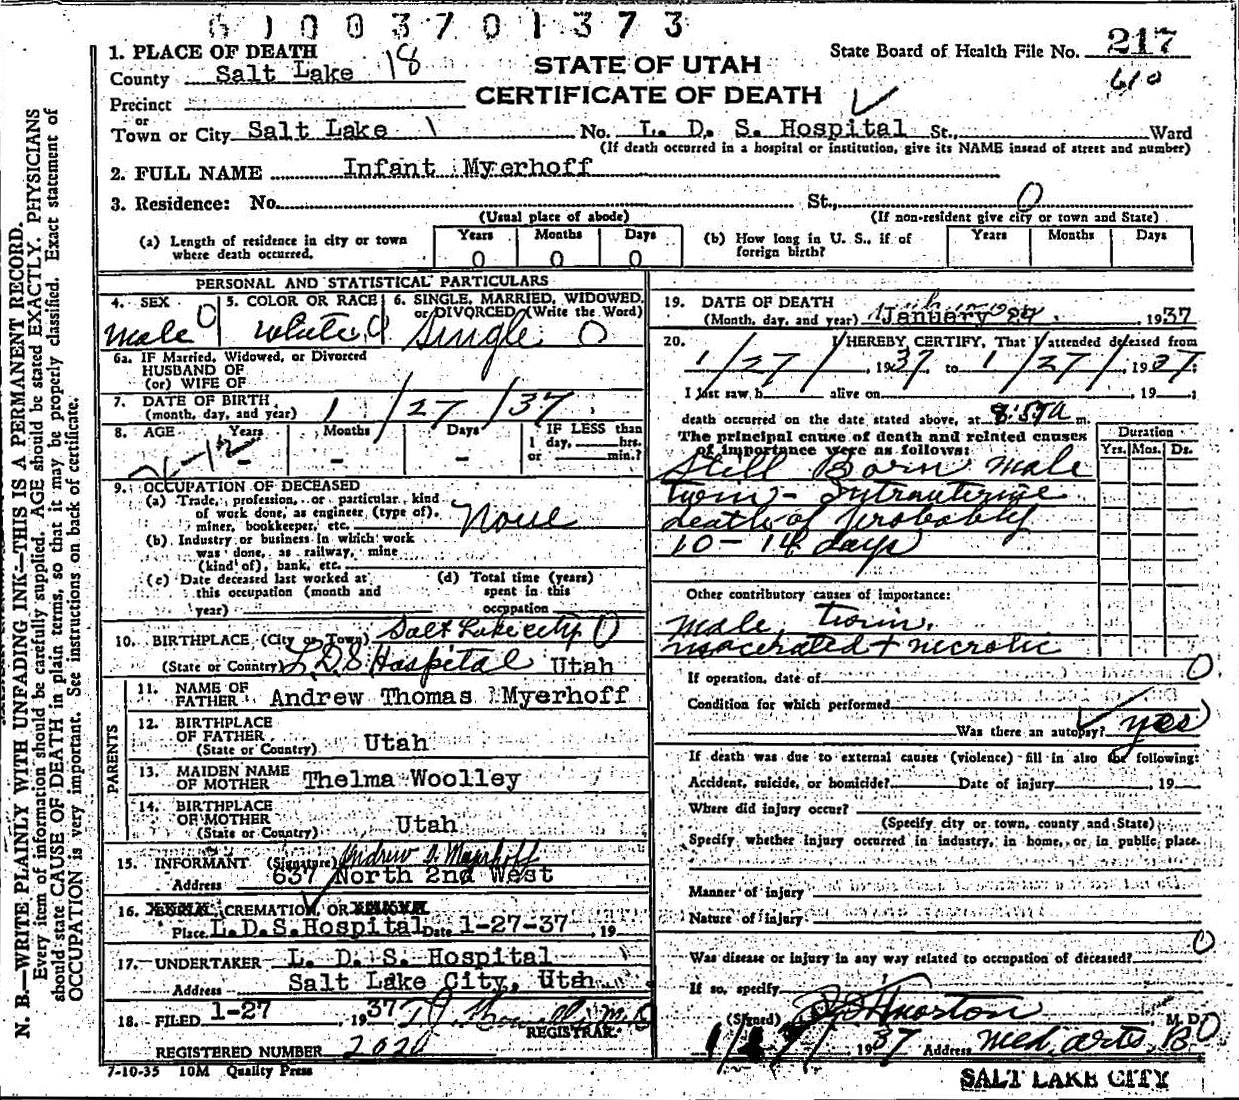 6 1 0 0 3 7 0 1 3 7 3
1. PLACE OF DEATH
County Salt Lake 18
STATE OF UTAH
CERTIFICATE OF DEATH
State Board of Health File No. 217
610
Precinct
or
Town or City Salt Lake 1 No. L. D. S. Hospital St., Ward
(If death occurred in a hospital or institution, give its NAME instead of street and number)
2. FULL NAME Infant Myerhoff
3. Residence: No. St., 0
(Usual place of abode) (If non-resident give city or town and State)
(a) Length of residence in city or town where death occurred. Years 0 Months 0 Days 0
(b) How long in U. S., if of foreign birth? Years Months Days
PERSONAL AND STATISTICAL PARTICULARS
4. SEX male 0
5. COLOR OR RACE white
6. SINGLE, MARRIED, WIDOWED, or DIVORCED (Write the Word) Single 0
6a. IF Married, Widowed, or Divorced
HUSBAND OF
(or) WIFE OF
7. DATE OF BIRTH
(month, day, and year) 1/27/37
8. AGE Years - Months - Days - IF LESS than
1 day, hrs.
or min.?
9. OCCUPATION OF DECEASED
(a) Trade, profession, or particular kind
of work done, as engineer (type of),
miner, bookkeeper, etc. None
(b) Industry or business in which work
was done, as railway, mine
(kind of), bank, etc.
(c) Date deceased last worked at
this occupation (month and
year)
(d) Total time (years)
spent in this
occupation
10. BIRTHPLACE (City or Town) Salt Lake City 0
(State or Country) L.D.S Hospital Utah
PARENTS
11. NAME OF
FATHER Andrew Thomas Myerhoff
12. BIRTHPLACE
OF FATHER
(State or Country) Utah
13. MAIDEN NAME
OF MOTHER Thelma Woolley
14. BIRTHPLACE
OF MOTHER
(State or Country) Utah
15. INFORMANT (Signature) Andrew
Address 637 North 2nd West
16. CREMATION, OR
Place L.D.S.Hospital Date 1-27-37, 19
17. UNDERTAKER L. D. S. Hospital
Address Salt Lake City, Utah
18. FILED 1-27, 1937 M.D.
REGISTRAR
REGISTERED NUMBER 2020
7-10-35 10M Quality Press
19. DATE OF DEATH
(Month, day, and year) January 27, 1937
20. I HEREBY CERTIFY, That I attended deceased from
1/27/, 1937, to 1/27/, 1937;
I last saw h alive on , 19 ;
death occurred on the date stated above, at 8:57a m.
The principal cause of death and related causes
of importance were as follows:
Duration
Yrs. Mos. Ds.
Still Born male
twin - Intrauterine
death of probably
10-14 days
Other contributory causes of importance:
male twin,
macerated + necrotic
If operation, date of 0
Condition for which performed
Was there an autopsy? yes
If death was due to external causes (violence) fill in also the following:
Accident, suicide, or homicide? Date of injury , 19
Where did injury occur?
(Specify city or town, county and State)
Specify whether injury occurred in industry, in home, or in public place.
Manner of injury
Nature of injury
0
Was disease or injury in any way related to occupation of deceased?
If so, specify
(Signed) M. D.
1937 Address Med. Arts. B
SALT LAKE CITY
N. B.—WRITE PLAINLY WITH UNFADING INK—THIS IS A PERMANENT RECORD.
Every item of information should be carefully supplied. AGE should be stated EXACTLY. PHYSICIANS
should state CAUSE OF DEATH in plain terms, so that it may be properly classified. Exact statement of
OCCUPATION is very important. See instructions on back of certificate.